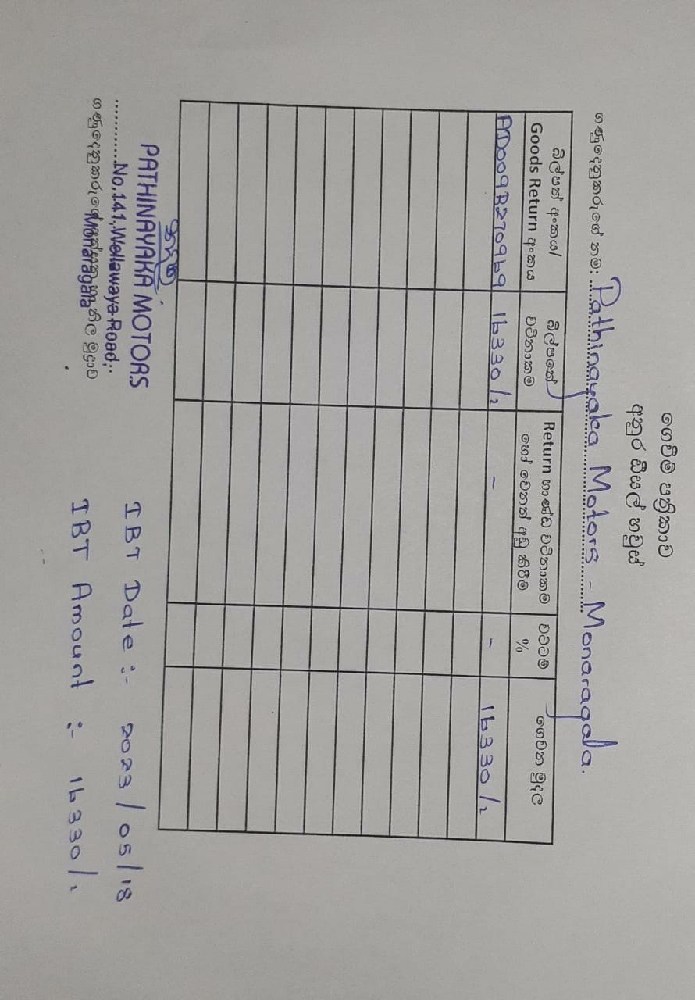 ගෙවීම් පත්‍රිකාව
අනුර ඩීසල් හවුස්
ගණුදෙනුකරුගේ නම: Pathinayaka Motors - Monaragala.
බිල්පත් අංකය/ Goods Return අංකය බිල්පතේ වටිනාකම Return භාණ්ඩ වටිනාකම හෝ වෙනත් අඩු කිරීම් වට්ටම % ගෙවන මුදල
AD009B270969 16330/- - - 16330/-
PATHINAYAKA MOTORS IBT Date :- 2023/05/18
No.141, Wellawaya Road,
Monaragala IBT Amount :- 16330/-
ගණුදෙනුකරුගේ මුද්‍රාව